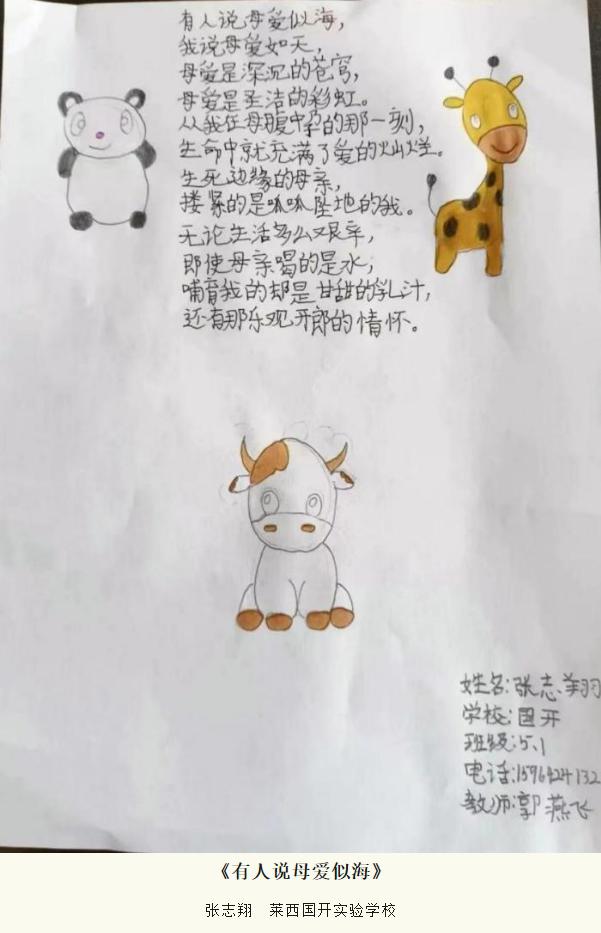 有人说母爱似海，
我说母爱如天，
母爱是深沉的苍穹，
母爱是圣洁的彩虹。
从我在母腹中孕的那一刻，
生命中就充满了爱的灿烂。
生死边缘的母亲，
搂紧的是呱呱坠地的我。
无论生活多么艰辛，
即使母亲喝的是水，
哺育我的却是甘甜的乳汁，
还有那乐观开郎的情怀。
姓名：张志翔
学校：国开
班级：5.1
电话：
教师：郭燕飞
《有人说母爱似海》
张志翔 莱西国开实验学校